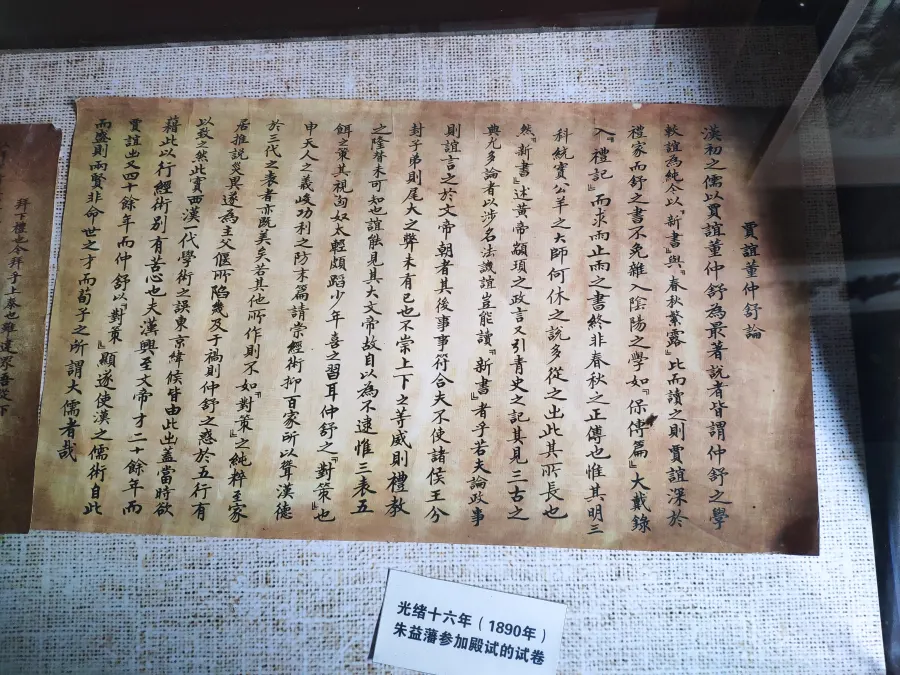 賈誼董仲舒論
漢初之儒以賈誼董仲舒為最著說者皆謂仲舒之學
較誼為純今以『新書』與『春秋繁露』比而讀之則賈誼深於
禮家而舒之書不免雜入陰陽之學如『保傅篇』大戴錄
入『禮記』而求雨止雨之書終非春秋之正傳也惟其明三
科統實公羊之大師何休之說多從之出此其所長也
然『新書』述黃帝顓頊之政言又引青史之記其見三古之
典尤多論者以涉名法譏誼豈能讀『新書』者乎若夫論政事
則誼言之於文帝朝者其後事事符合夫不使諸侯王分
封子弟則尾大之弊未有已也不崇上下之等威則禮教
之隆替未可知也誼能見其大文帝故自以為不逮惟三表五
餌之策其視匈奴太輕頗蹈少年喜之習耳仲舒之『對策』也
申天人之義峻功利之防末篇請崇經術抑百家所以聳漢德
於三代之表者亦既美矣若其他所作則不如『對策』之純粹至家
居推說災異遂為主父偃所陷幾及于禍則仲舒之惑於五行有
以致之然此實西漢一代學術之誤東京緯候皆由此出蓋當時欲
藉此以行經術別有苦心也夫漢興至文帝才二十餘年而
賈誼出又四十餘年而仲舒以『對策』顯遂使漢之儒術自此
而盛則兩賢非命世之才而荀子之所謂大儒者哉
拜下禮也今拜乎上泰也雖違眾吾從下
光绪十六年（1890年）
朱益藩参加殿试的试卷